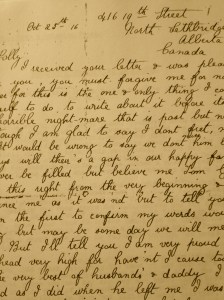 Oct 25th 16
416 19th Street
North Lethbridge
Alberta
Canada
Polly
I received your letter & was pleas
you, you must forgive me for no
for this is the one & only thing I co
self to do, to write about it before
horrible night-mare that is past but n
ough I am glad to say I dont first,
It would be wrong to say we dont him b
ays will there's a gap in our happy fa
ver be filled but believe me I'm
this right from the very beginning
me as it was not but to tell you
in the first to confirm my words
but may be some day we will me
But I'll tell you I am very proud
head very high for hav'nt I cause to
the very best of husbands & daddy
as I did when he left me I was